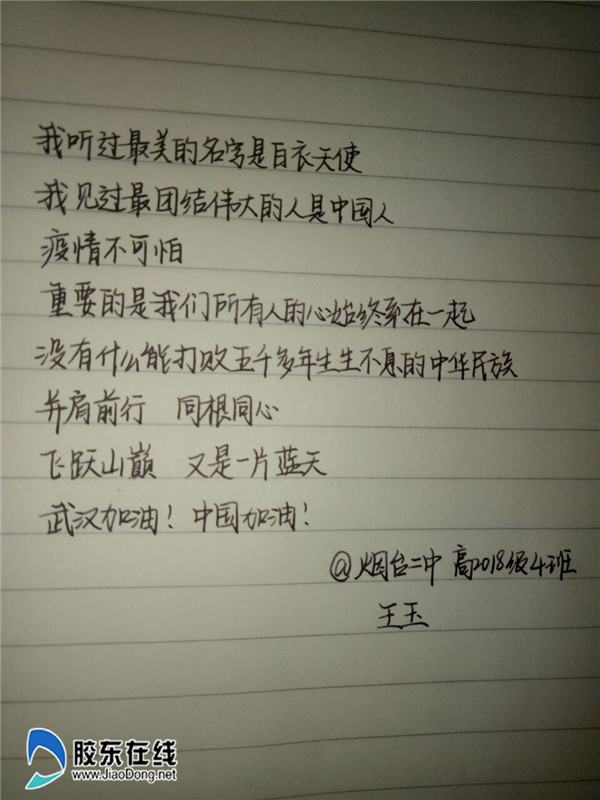 我听过最美的名字是白衣天使
我见过最团结伟大的人是中国人
疫情不可怕
重要的是我们所有人的心始终系在一起
没有什么能打败五千多年生生不息的中华民族
并肩前行 同根同心
飞跃山巅 又是一片蓝天
武汉加油！中国加油！
@烟台二中 高2018级4班
王玉
胶东在线
www.JiaoDong.net